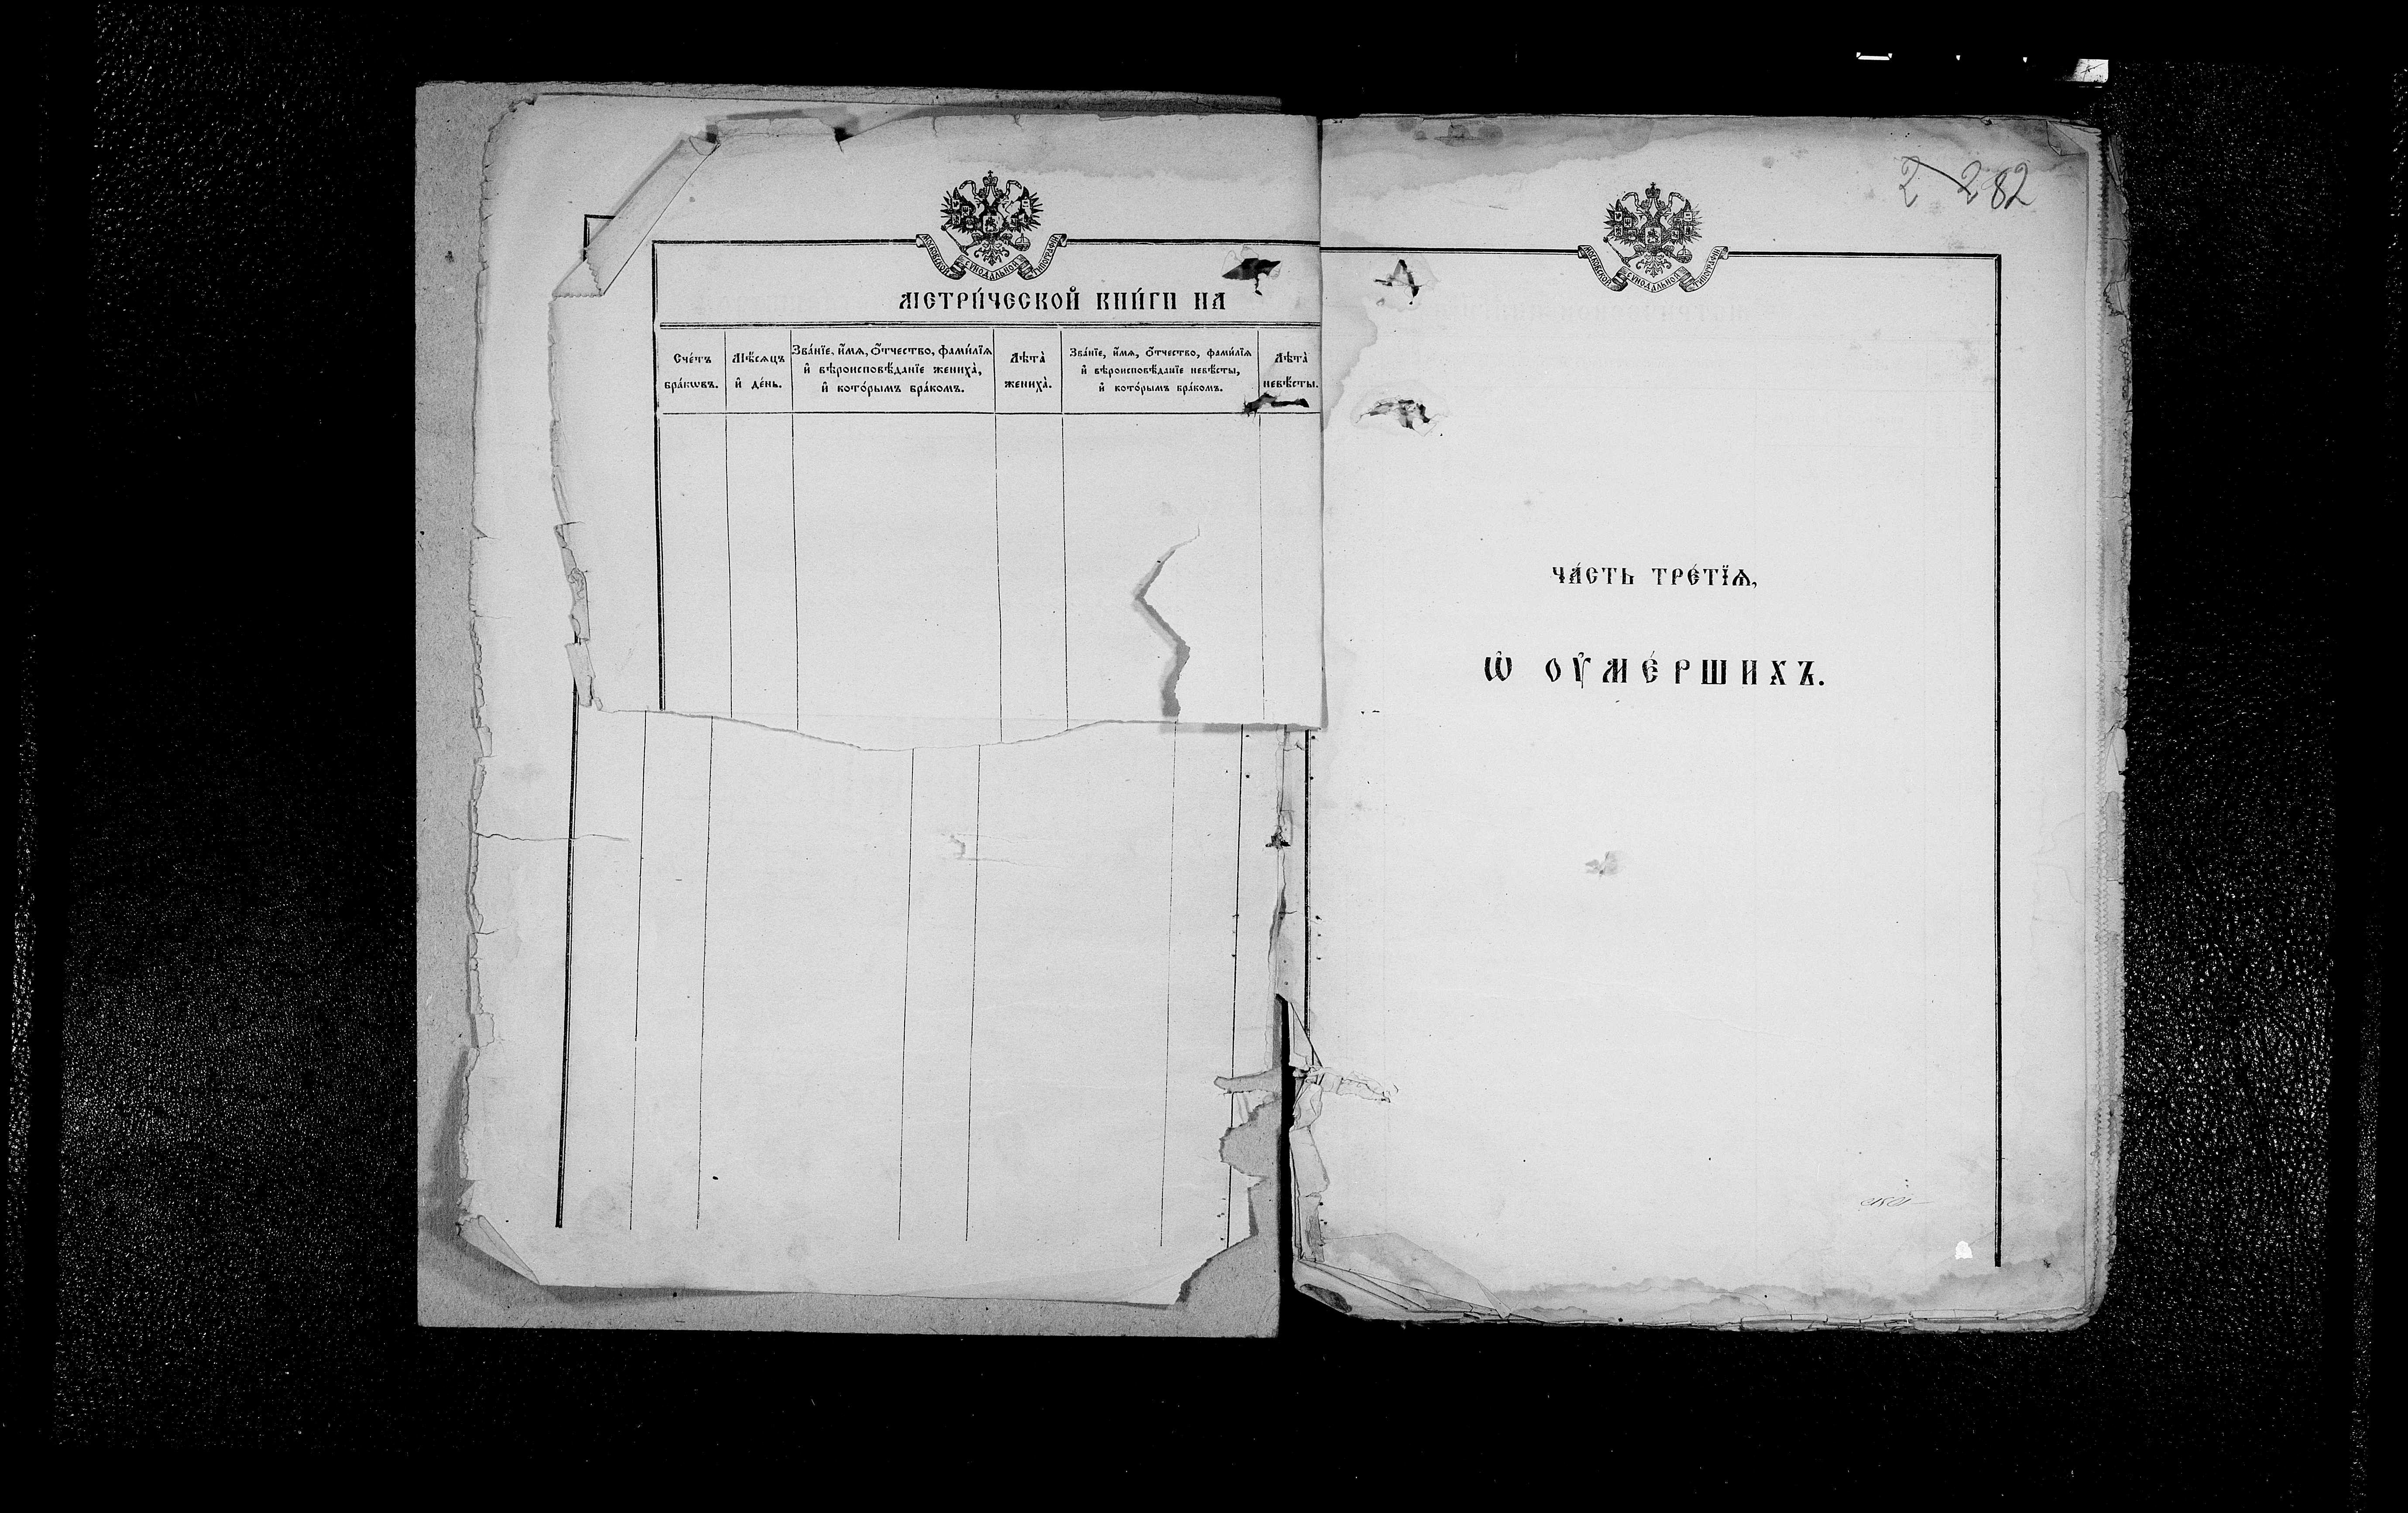 МОСКОВСКОЙ СѴНОДАЛЬНОЙ ТИПОГРАФІИ
МЕТРИ́ЧЕСКОЙ КНИ́ГИ НА
Сче́тъ
бра́кѡвъ.
Мѣ́сяцъ
и҆ де́нь.
Зва́нїе, и҆́мѧ, ѻ҆́тчество, фами́лїѧ
и҆ вѣроисповѣ́данїе жениха̀,
и҆ кото́рымъ бра́комъ.
Лѣта̀
жениха̀.
Зва́нїе, и҆́мѧ, ѻ҆́тчество, фами́лїѧ
и҆ вѣроисповѣ́данїе невѣ́сты,
и҆ кото́рымъ бра́комъ.
Лѣта̀
невѣ́сты.
2 282
МОСКОВСКОЙ СѴНОДАЛЬНОЙ ТИПОГРАФІИ
ЧА́СТЬ ТРЕ́ТЇѦ,
Ѡ҆ ОУ҆МЕ́РШИХЪ.